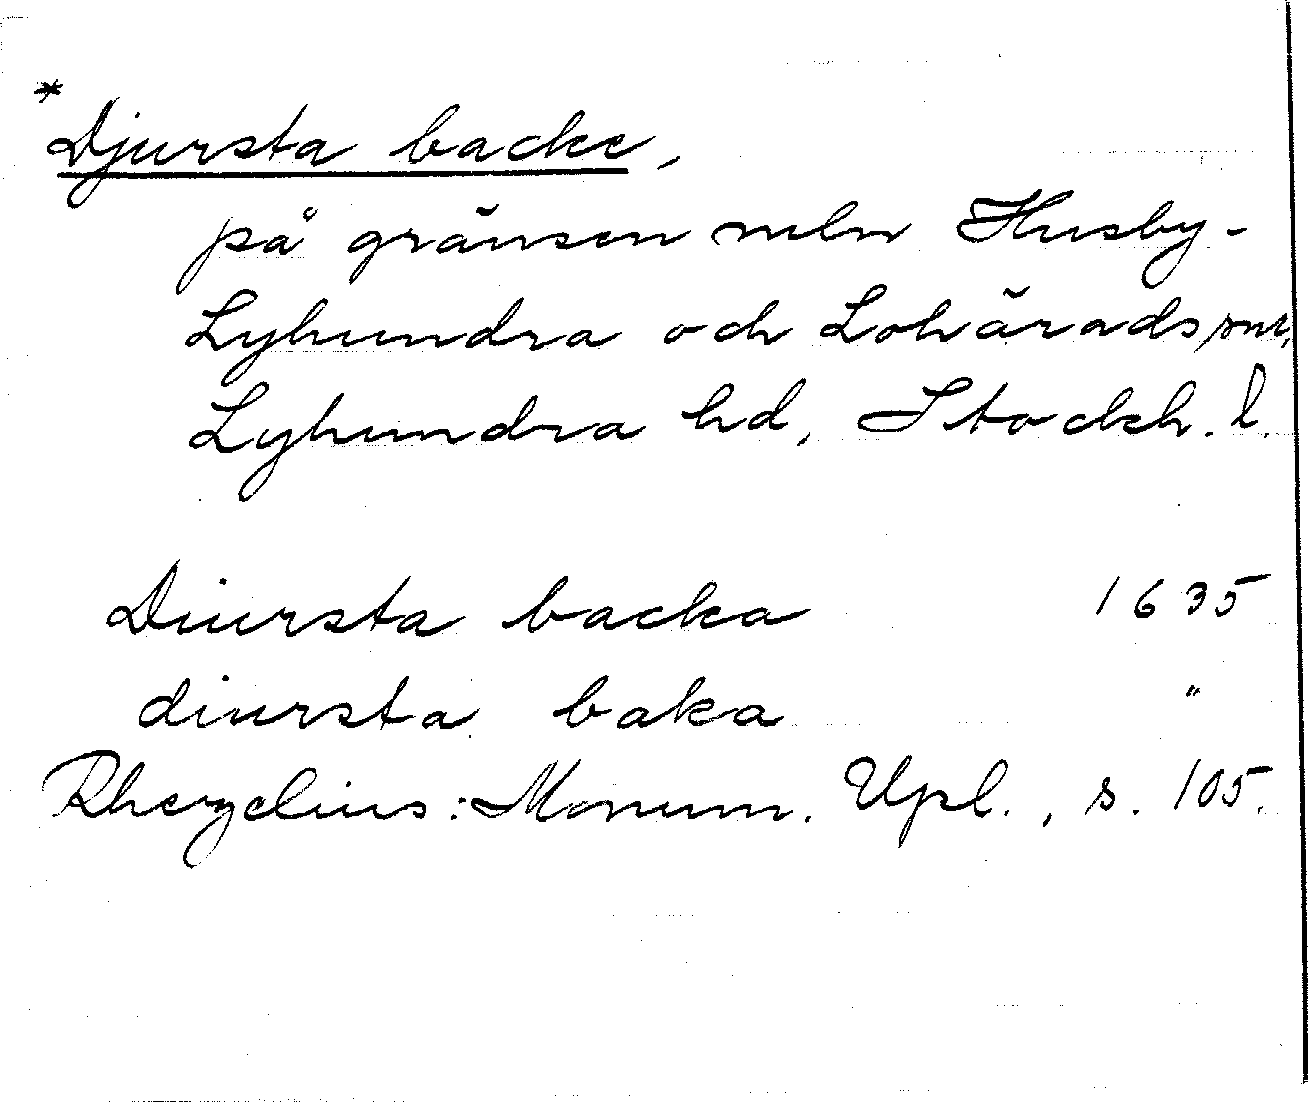 *Djursta backe,
på gränsen mln Husby-
Lyhundra och Lohärads snr,
Lyhundra hd, Stockh. l.
Diursta backa 1635
diursta baka "
Rhezelius: Monum. Upl., s. 105.